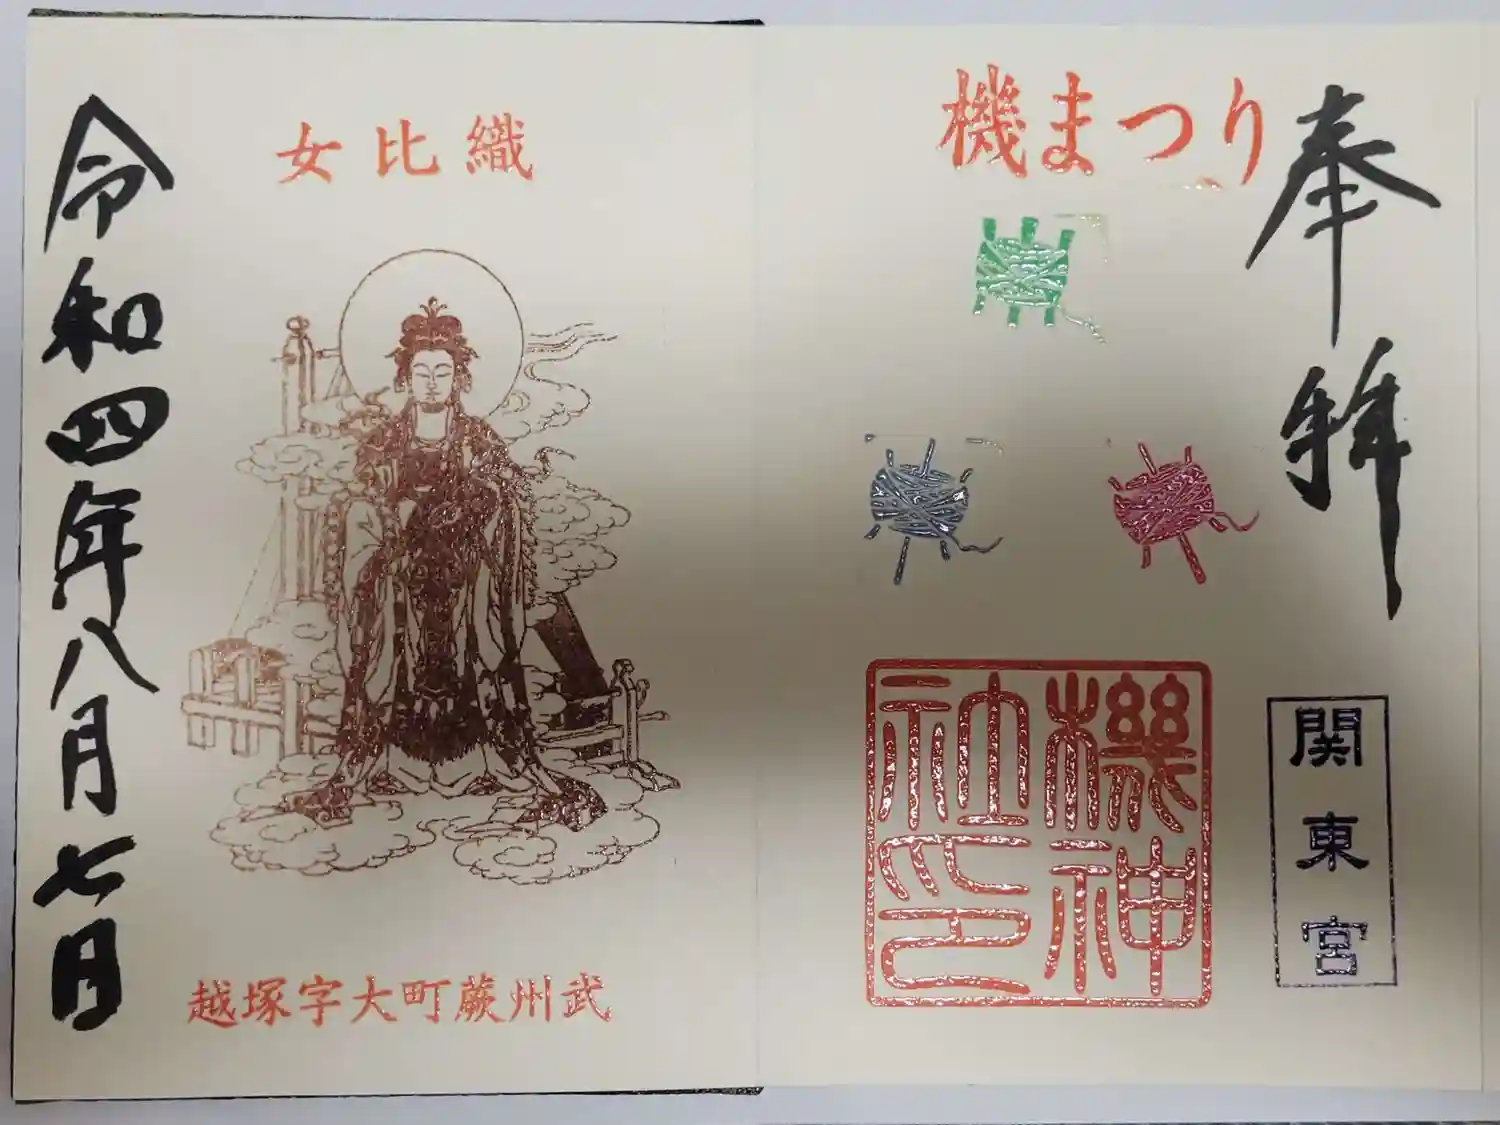 奉拝
機まつり
機神社印
関東宮
織比女
武州蕨町大字塚越
令和四年八月七日